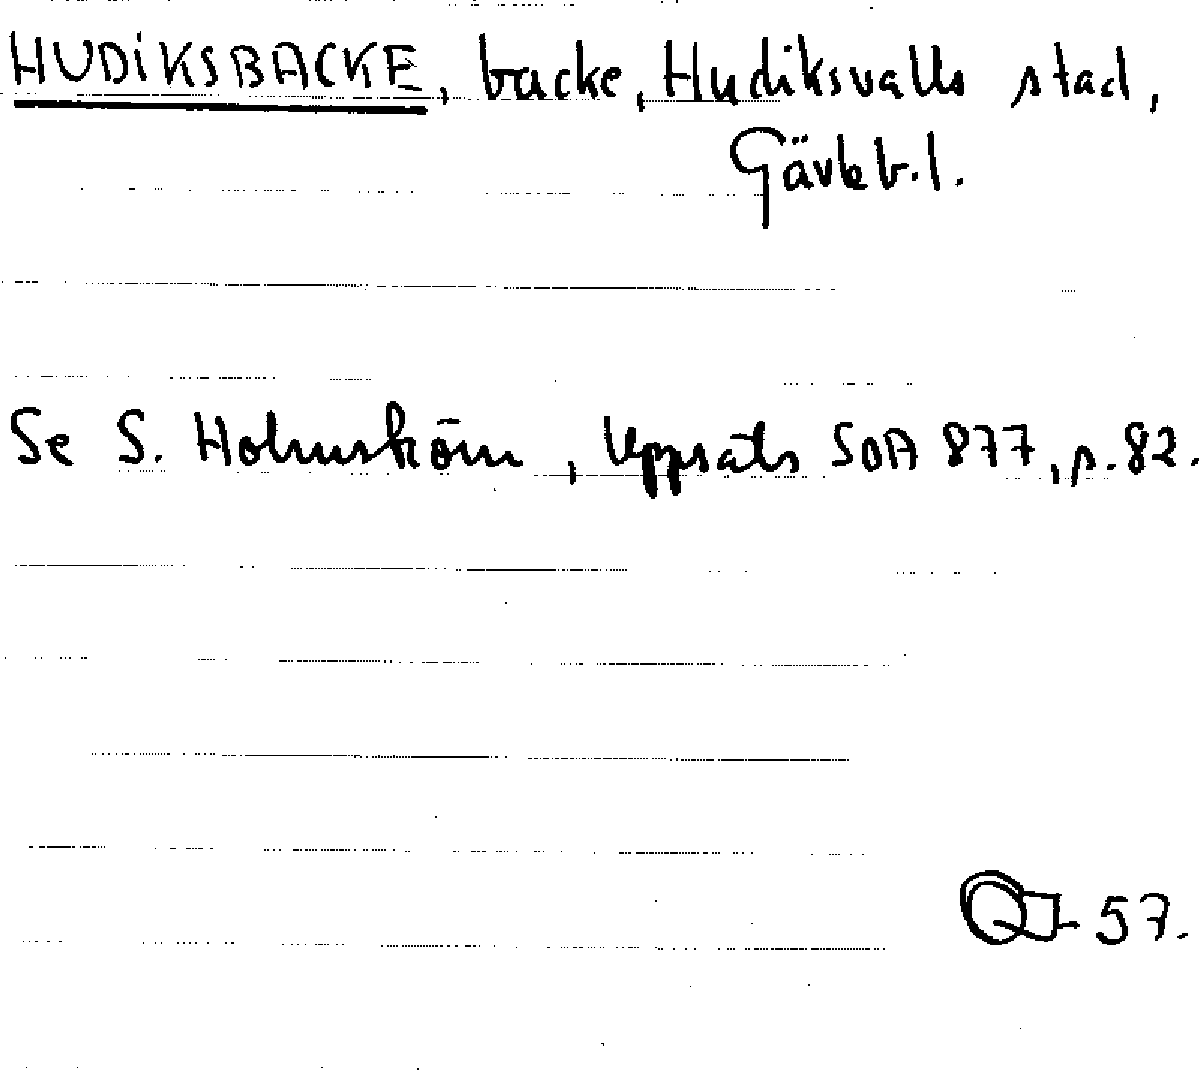 HUDIKSBACKE, backe, Hudiksvalls stad,
Gävleb.l.
Se S. Holmsköm, Uppsats SOA 877, s. 82.
57.